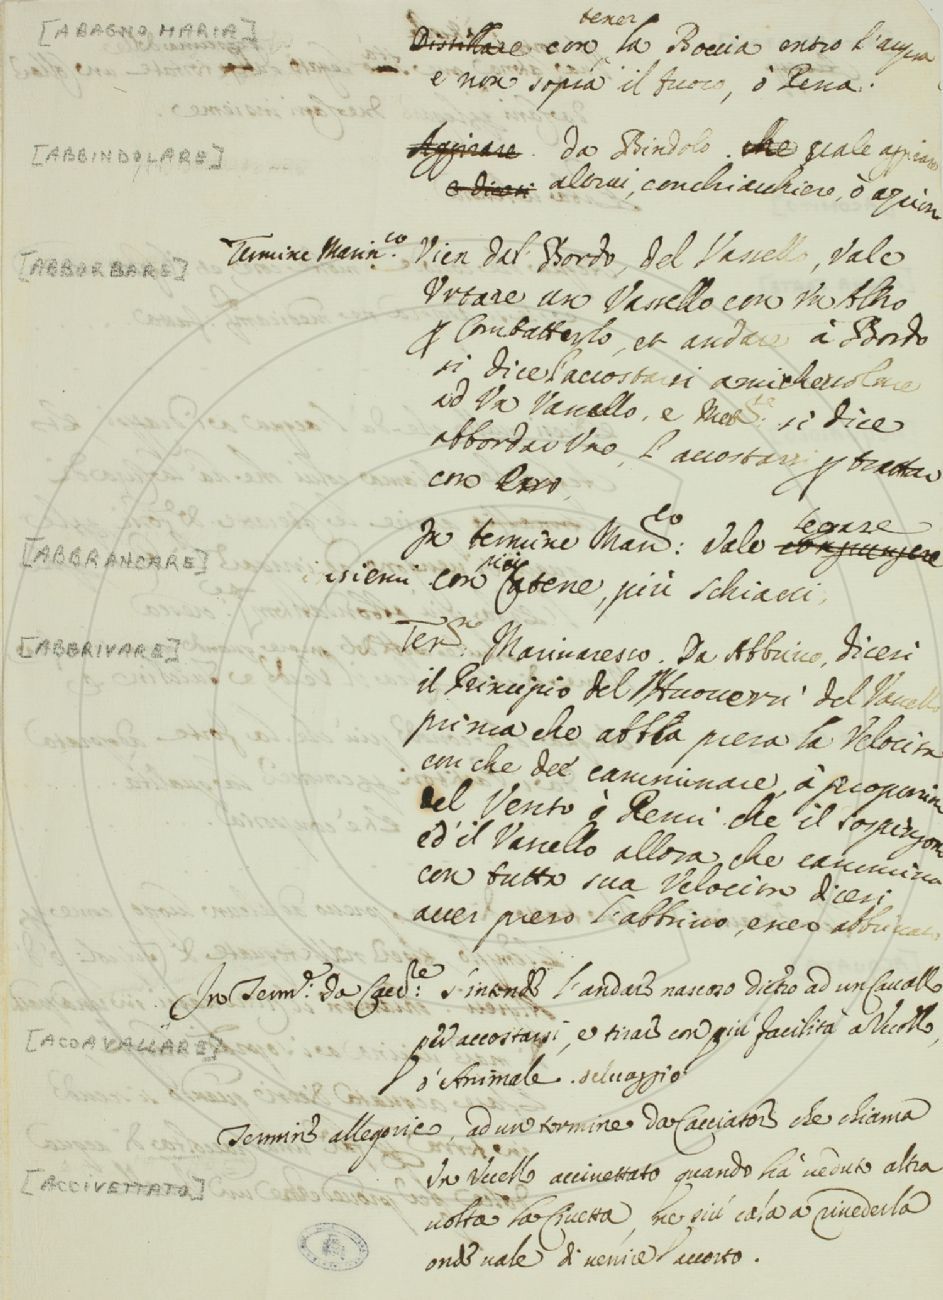 [A BAGNO MARIA]
tener
Distillare con la Boccia entro l'acqua
e non soprà il fuoco, ò Rena.
[ABBINDOLARE]
Aggirare. da Bindolo. che quale
e dicesi altrui, con chiacchiere, ò
[ABBORBARE]
Termine Marin.co Vien dal Bordo, del Vassello, Vale
Urtare un Vassello con Un Altro
p Combatterlo, et andare à Bordo
si dice l'accostarsi amichevolmte
ad Un Vassello. e si dice
abbordar Uno, l'accostarsi p trattar
con Esso.
[ABBRANCARE]
In termine Marco: Vale legare congiungere
insiemi con Catene, più Schiavi.
[ABBRIVARE]
Terne. Marinaresco. Da Abbrivo, dicesi
il Principio del Muoversi del Vassello
prima che abbia presa la Velocità
con che dee camminare, à proporzion
del Vento ò Remi che il sospingono
ed il Vassello allora che cammina
con tutta sua Velocità dicesi
aver preso l'abbrivo, esser abbrivato
In Termе. da Caccre: s'intende l'andare nascoso dietro ad un Cavallo
[ACCAVALLARE]
per accostarsi, e tirare con più facilità a Vcello,
ò Animale selvaggio
Termine allegorico, ad un termine da Cacciatore che chiama
[ACCIVETTATO]
Un Vcello accivettato quando ha veduto altra
volta la Civetta, ne più cala a rivederla
onde vale divenire l'accorto.